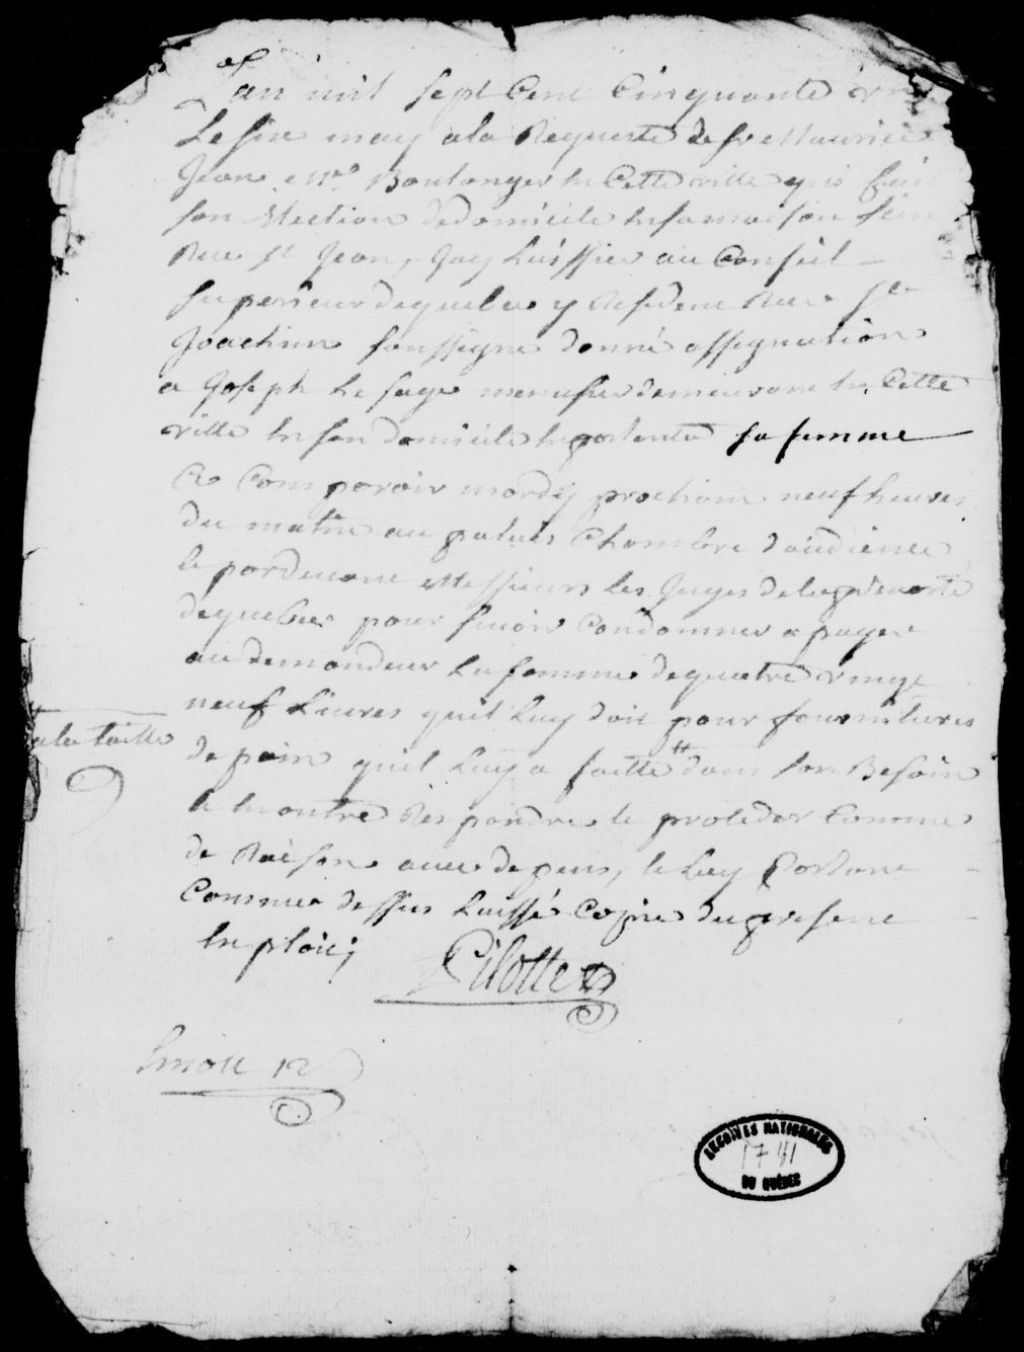 L'an mil sept Cent Cinquante &
Le six may ala Requeste de sr Maurice
Jean Mre Boulanger en Cette ville qui fait
son Election de domicile en sa maison size
Rue st Jean, Jay huissier au Conseil
superieur de quebec y Residant Rue st
Joachim soussigné donné assignation
a Joseph Le sage menusier demeurant en Cette
ville en son domicile en parlant a sa femme
a Comparoir mardy prochain neuf heures
du matin au palais Chambre d'audience
& pardevant Messieurs les Juges de la prevosté
de quebec pour se voir Condamner a payer
au demandeur La somme de quatre vingt
neuf Livres quil Luy doit pour fournitures
a la taille
de pain quil Luy a faitte # dans son Besoin
& en outre Respondre & proceder Comme
de Raison avec depens, & Luy
Comme dessus Laissé Copie du present
Exploit;
Pilotte
12
ARCHIVES NATIONALES
DU QUÉBEC